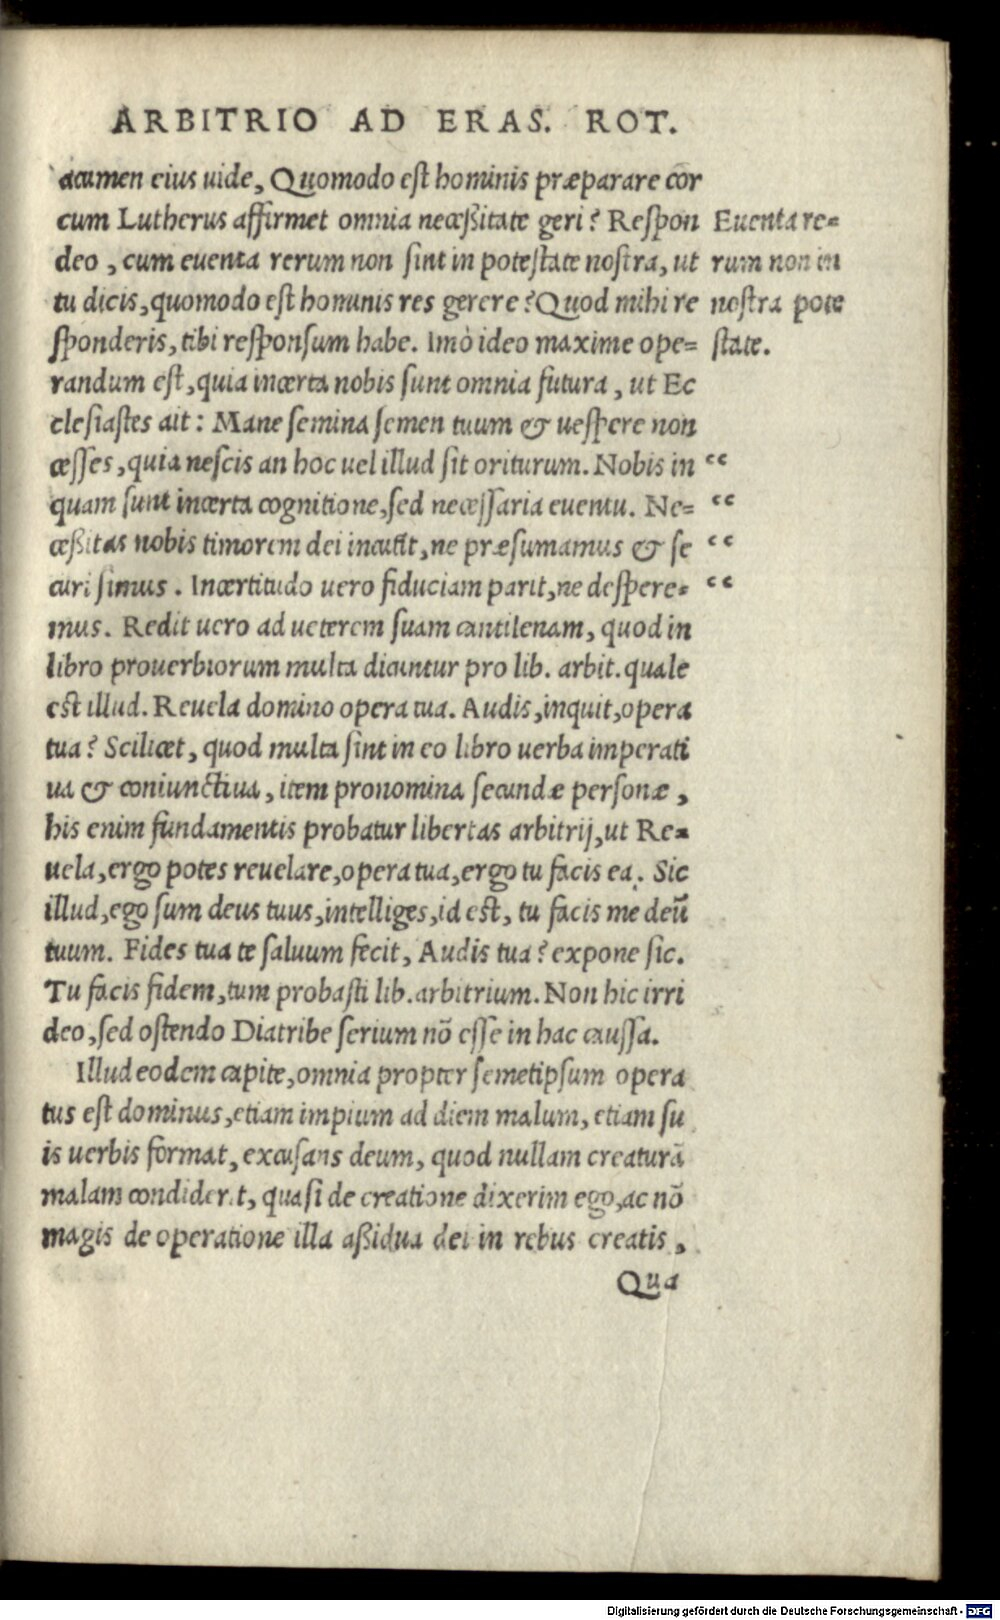 ARBITRIO AD ERAS. ROT.
acumen eius uide, Quomodo est hominis præparare cor
cum Lutherus affirmet omnia neceßitate geri? Respon
deo, cum euenta rerum non sint in potestate nostra, ut
tu dicis, quomodo est hominis res gerere? Quod mihi re
sponderis, tibi responsum habe. Imò ideo maxime ope=
randum est, quia incerta nobis sunt omnia futura, ut Ec
clesiastes ait: Mane semina semen tuum & uespere non
cesses, quia nescis an hoc uel illud sit oriturum. Nobis in
quam sunt incerta cognitione, sed necessaria euentu. Ne=
ceßitas nobis timorem dei incutit, ne præsumamus & se
curi simus. Incertitudo uero fiduciam parit, ne despere=
mus. Redit uero ad ueterem suam cantilenam, quod in
libro prouerbiorum multa dicuntur pro lib. arbit. quale
est illud. Reuela domino opera tua. Audis, inquit, opera
tua? Scilicet, quod multa sint in eo libro uerba imperati
ua & coniunctiua, item pronomina secundæ personæ,
his enim fundamentis probatur libertas arbitrij, ut Re=
uela, ergo potes reuelare, opera tua, ergo tu facis ea. Sic
illud, ego sum deus tuus, intelliges, id est, tu facis me deū
tuum. Fides tua te saluum fecit, Audis tua? expone sic.
Tu facis fidem, tum probasti lib. arbitrium. Non hic irri
deo, sed ostendo Diatribe serium nō esse in hac caussa.
Illud eodem capite, omnia propter semetipsum opera
tus est dominus, etiam impium ad diem malum, etiam su
is uerbis format, excusans deum, quod nullam creaturā
malam condiderit, quasi de creatione dixerim ego, ac nō
magis de operatione illa aßidua dei in rebus creatis,
Qua
Euenta re=
rum non in
nostra pote
state.
“
“
“
“
Digitalisierung gefördert durch die Deutsche Forschungsgemeinschaft - DFG